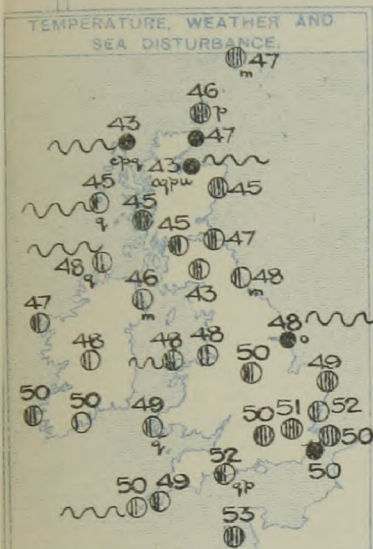 TEMPERATURE, WEATHER AND
SEA DISTURBANCE.
47
m
46
p
43
47
cpq
43
oqpw
45
45
45
q
45
47
48
q
46
m
43
48
m
47
48
48
48
48
o
50
49
50
50
49
q
50
51
52
50
50
52
qp
50
49
53